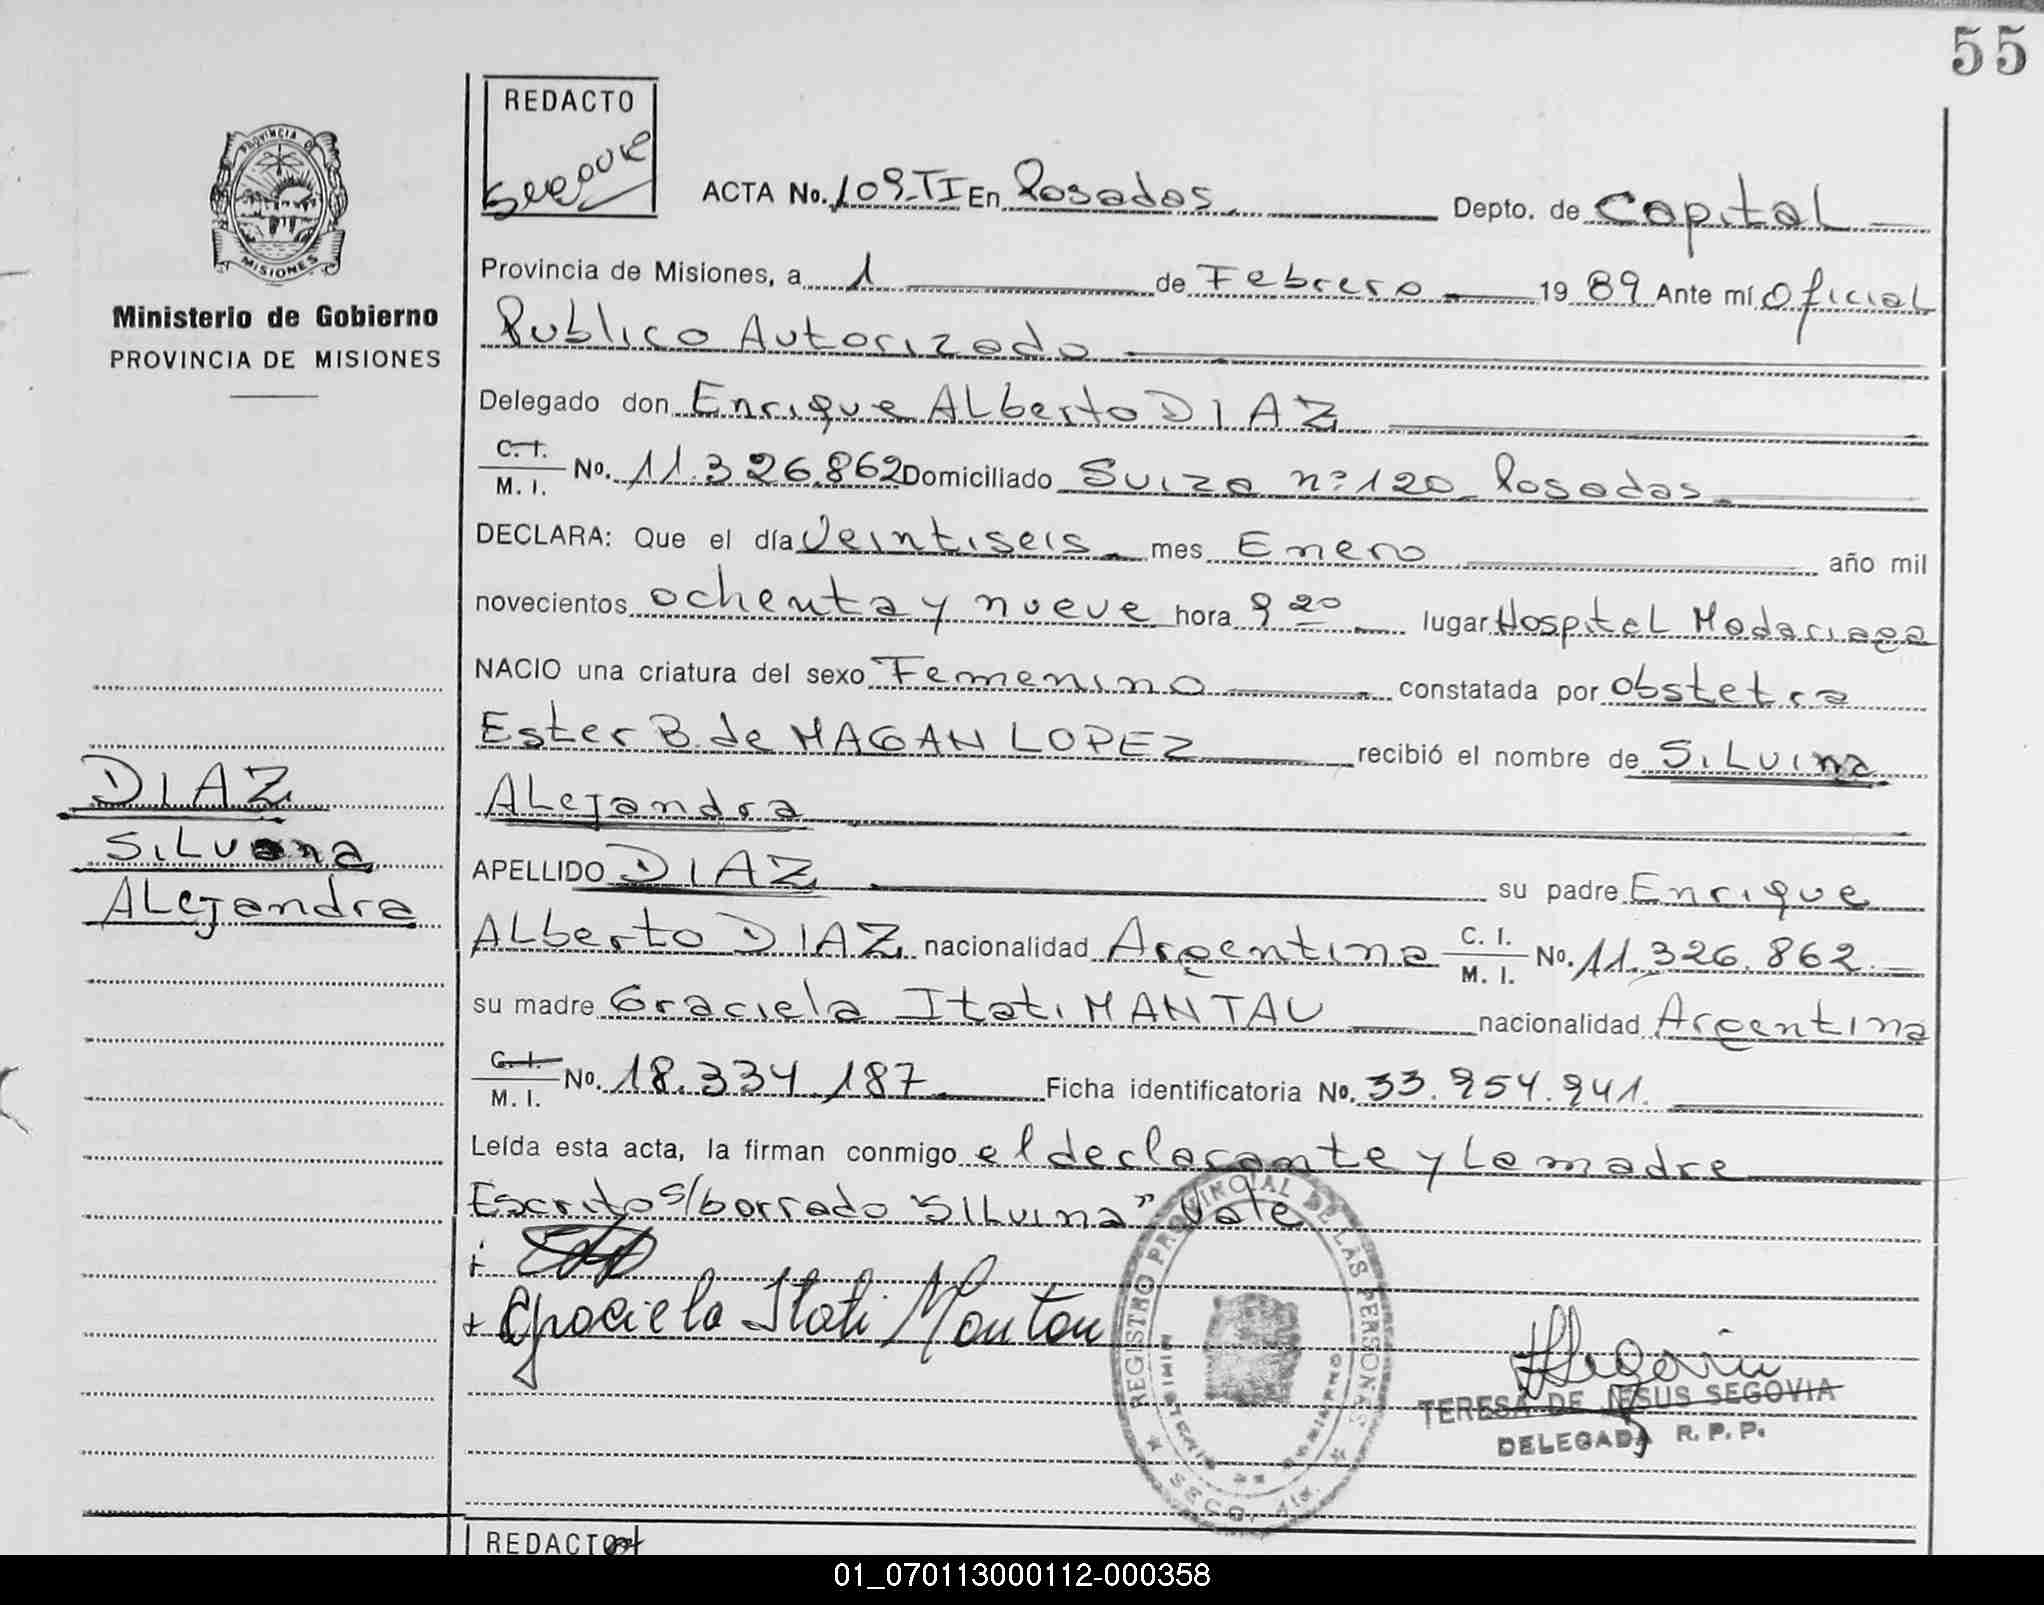 55
REDACTO
Segovie
PROVINCIA DE
MISIONES
Ministerio de Gobierno
PROVINCIA DE MISIONES
ACTA No. 109-TI En Posadas Depto. de Capital
Provincia de Misiones, a 1 de Febrero 1989 Ante mí Oficial
Publico Autorizado
Delegado don Enrique Alberto DIAZ
C. I.
M. I. No. 11.326.862 Domiciliado Suiza nº 120 Posadas
DECLARA: Que el día Veintiseis mes Enero año mil
novecientos ochenta y nueve hora 9 20 lugar Hospital Madariaga
NACIO una criatura del sexo Femenino constatada por obstetra
Ester B. de MAGAN LOPEZ recibió el nombre de Silvina
Alejandra
DIAZ
Alejandra
APELLIDO DIAZ su padre Enrique
Alberto DIAZ nacionalidad Argentina C. I.
M. I. No. 11.326.862
su madre Graciela Itati MANTAU nacionalidad Argentina
C. I.
M. I. No. 18.334.187 Ficha identificatoria No. 33.954.941.
Leída esta acta, la firman conmigo el declarante y la madre
Escrito s/borrado "Silvina" Vale
Graciela Itati Mantau
REGISTRO PROVINCIAL DE LAS PERSONAS
MINISTERIO DE GOBIERNO
Segovia
TERESA DE JESUS SEGOVIA
DELEGADA R. P. P.
REDACTO
01_070113000112-000358